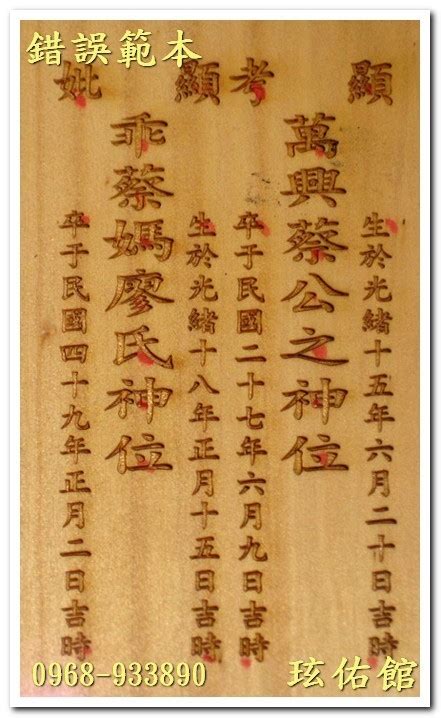 錯誤範本
顯考
萬興蔡公之神位
生於光緒十五年六月二十日吉時
卒于民國二十七年六月九日吉時
顯妣
乖蔡媽廖氏神位
生於光緒十八年正月十五日吉時
卒于民國四十九年正月二日吉時
0968-933890
玹佑館